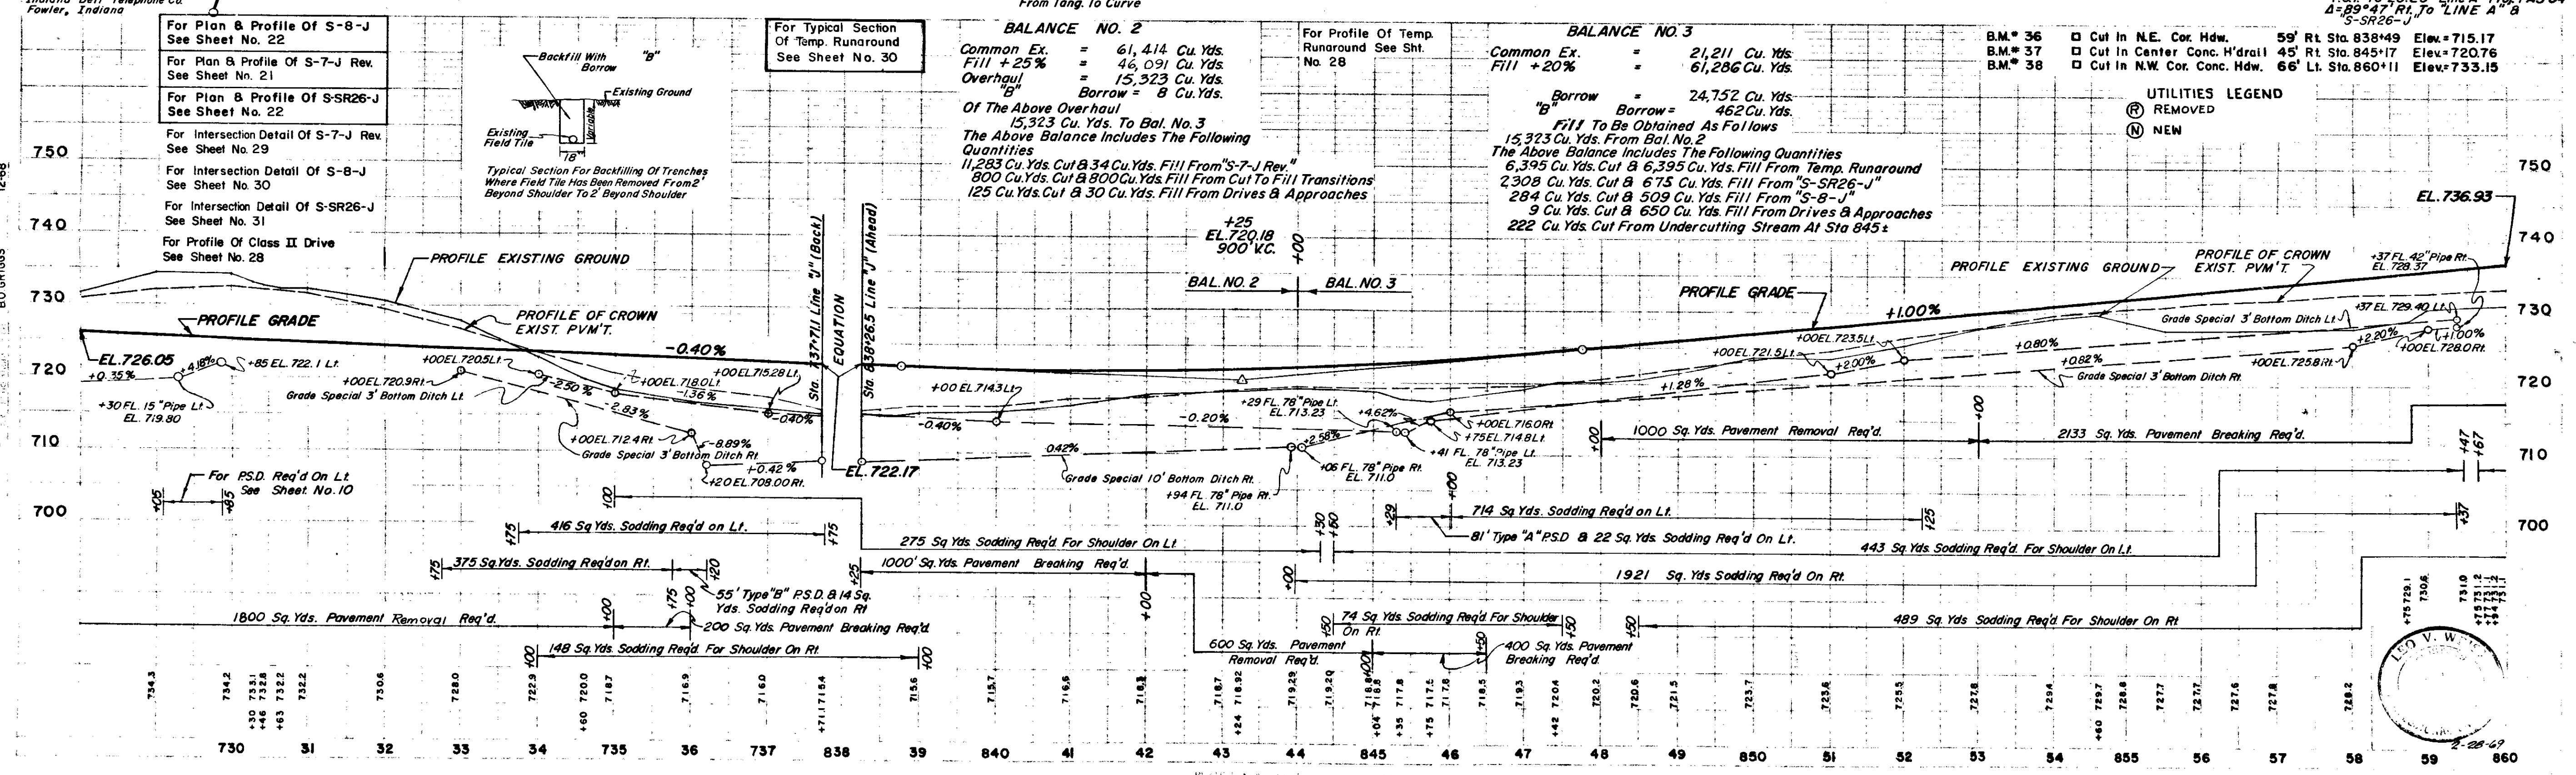 Fowler, Indiana
From Tang. To Curve
Δ=89°47' Rt. To "LINE A" &
"S-SR26-J"
For Plan & Profile Of S-8-J
See Sheet No. 22
For Plan & Profile Of S-7-J Rev.
See Sheet No. 21
For Plan & Profile Of S-SR26-J
See Sheet No. 22
For Intersection Detail Of S-7-J Rev.
See Sheet No. 29
For Intersection Detail Of S-8-J
See Sheet No. 30
For Intersection Detail Of S-SR26-J
See Sheet No. 31
For Profile Of Class II Drive
See Sheet No. 28
Backfill With "B"
Borrow
Existing Ground
Variable
Existing
Field Tile
18"
Typical Section For Backfilling Of Trenches
Where Field Tile Has Been Removed From 2'
Beyond Shoulder To 2' Beyond Shoulder
For Typical Section
Of Temp. Runaround
See Sheet No. 30
BALANCE NO. 2
Common Ex. = 61,414 Cu. Yds.
Fill +25% = 46,091 Cu. Yds.
Overhaul = 15,323 Cu. Yds.
"B" Borrow = 8 Cu. Yds.
Of The Above Overhaul
15,323 Cu. Yds. To Bal. No. 3
The Above Balance Includes The Following
Quantities
11,283 Cu. Yds. Cut & 34 Cu. Yds. Fill From "S-7-J Rev."
800 Cu. Yds. Cut & 800 Cu. Yds. Fill From Cut To Fill Transitions
125 Cu. Yds. Cut & 30 Cu. Yds. Fill From Drives & Approaches
For Profile Of Temp.
Runaround See Sht.
No. 28
BALANCE NO. 3
Common Ex. = 21,211 Cu. Yds.
Fill +20% = 61,286 Cu. Yds.
Borrow = 24,752 Cu. Yds.
"B" Borrow = 462 Cu. Yds.
Fill To Be Obtained As Follows
15,323 Cu. Yds. From Bal. No. 2
The Above Balance Includes The Following Quantities
6,395 Cu. Yds. Cut & 6,395 Cu. Yds. Fill From Temp. Runaround
2308 Cu. Yds. Cut & 675 Cu. Yds. Fill From "S-SR26-J"
284 Cu. Yds. Cut & 509 Cu. Yds. Fill From "S-8-J"
9 Cu. Yds. Cut & 650 Cu. Yds. Fill From Drives & Approaches
222 Cu. Yds. Cut From Undercutting Stream At Sta 845±
B.M.# 36 □ Cut In N.E. Cor. Hdw. 59' Rt. Sta. 838+49 Elev.=715.17
B.M.# 37 □ Cut In Center Conc. H'drail 45' Rt. Sta. 845+17 Elev.=720.76
B.M.# 38 □ Cut In N.W. Cor. Conc. Hdw. 66' Lt. Sta. 860+11 Elev.=733.15
UTILITIES LEGEND
Ⓡ REMOVED
Ⓝ NEW
12-68
B.O. GRIGGS
750
740
730
720
710
700
750
740
730
720
710
700
+25
EL. 720.18
900' V.C.
+00
BAL. NO. 2
BAL. NO. 3
EL. 736.93
PROFILE EXISTING GROUND
PROFILE OF CROWN
EXIST. PVM'T.
PROFILE GRADE
EL. 726.05
-0.40%
+0.35%
+4.18%
+85 EL. 722.1 Lt.
+30 FL. 15" Pipe Lt.
EL. 719.80
+00 EL. 720.5 Lt.
+00 EL. 720.9 Rt.
Grade Special 3' Bottom Ditch Lt.
-2.50%
+00 EL. 718.0 Lt.
-1.36%
-2.83%
+00 EL. 715.28 Lt.
-0.40%
+00 EL. 712.4 Rt.
-8.89%
Grade Special 3' Bottom Ditch Rt.
+0.42%
+20 EL. 708.00 Rt.
Sta. 737+71.1 Line "J" (Back)
EQUATION
Sta. 838+26.5 Line "J" (Ahead)
EL. 722.17
+00 EL. 714.3 Lt.
-0.40%
-0.20%
0.42%
Grade Special 10' Bottom Ditch Rt.
+29 FL. 78" Pipe Lt.
EL. 713.23
+4.62%
+2.58%
+06 FL. 78" Pipe Rt.
EL. 711.0
+94 FL. 78" Pipe Rt.
EL. 711.0
+00 EL. 716.0 Rt.
+75 EL. 714.8 Lt.
+41 FL. 78" Pipe Lt.
EL. 713.23
PROFILE GRADE
+1.00%
+1.28%
+00 EL. 721.5 Lt.
+00 EL. 723.5 Lt.
+2.00%
+0.80%
+0.82%
PROFILE EXISTING GROUND
PROFILE OF CROWN
EXIST. PVM'T.
+37 FL. 42" Pipe Rt.
EL. 728.37
+37 EL. 729.40 Lt.
Grade Special 3' Bottom Ditch Lt.
+2.20%
+1.00%
+00 EL. 728.0 Rt.
+00 EL. 725.8 Rt.
Grade Special 3' Bottom Ditch Rt.
For P.S.D. Req'd On Lt.
See Sheet No. 10
+05
+85
+00
+75
416 Sq. Yds. Sodding Req'd on Lt.
+75
275 Sq. Yds. Sodding Req'd. For Shoulder On Lt.
+30
+60
+75
375 Sq. Yds. Sodding Req'd on Rt.
+20
55' Type "B" P.S.D. & 14 Sq.
Yds. Sodding Req'd on Rt
+75
+00
+25
1000' Sq. Yds. Pavement Breaking Req'd.
+00
1800 Sq. Yds. Pavement Removal Req'd.
+00
200 Sq. Yds. Pavement Breaking Req'd.
+00
148 Sq. Yds. Sodding Req'd. For Shoulder On Rt.
+00
+29
+00
714 Sq. Yds. Sodding Req'd on Lt.
+25
81' Type "A" P.S.D & 22 Sq. Yds. Sodding Req'd On Lt.
+00
1000 Sq. Yds. Pavement Removal Req'd.
+00
2133 Sq. Yds. Pavement Breaking Req'd.
+47
+67
443 Sq. Yds. Sodding Req'd. For Shoulder On Lt.
+37
+00
1921 Sq. Yds Sodding Req'd On Rt.
+50
74 Sq. Yds. Sodding Req'd For Shoulder
On Rt.
+50
+50
489 Sq. Yds Sodding Req'd For Shoulder On Rt
600 Sq. Yds. Pavement
Removal Req'd.
+00
+50
400 Sq. Yds. Pavement
Breaking Req'd.
734.3
734.2
+30 733.1
+46 732.8
+63 732.2
732.2
730.6
728.0
722.9
+60 720.0
718.7
716.9
716.0
+71.1 715.4
715.6
715.7
716.6
718.7
+24 718.92
719.29
719.20
+04 718.8
+35 717.8
+75 717.5
717.8
718.5
719.3
+42 720.4
720.2
720.6
721.5
723.7
723.6
725.5
727.8
729.4
+60 729.7
728.8
727.7
727.7
727.6
727.8
728.2
+75 729.1
730.6
731.0
+75 731.2
+77 731.1
+94 731.2
731.1
LEO V.
2-28-69
730 31 32 33 34 735 36 737 838 39 840 41 42 43 44 845 46 47 48 49 850 51 52 53 54 855 56 57 58 59 860